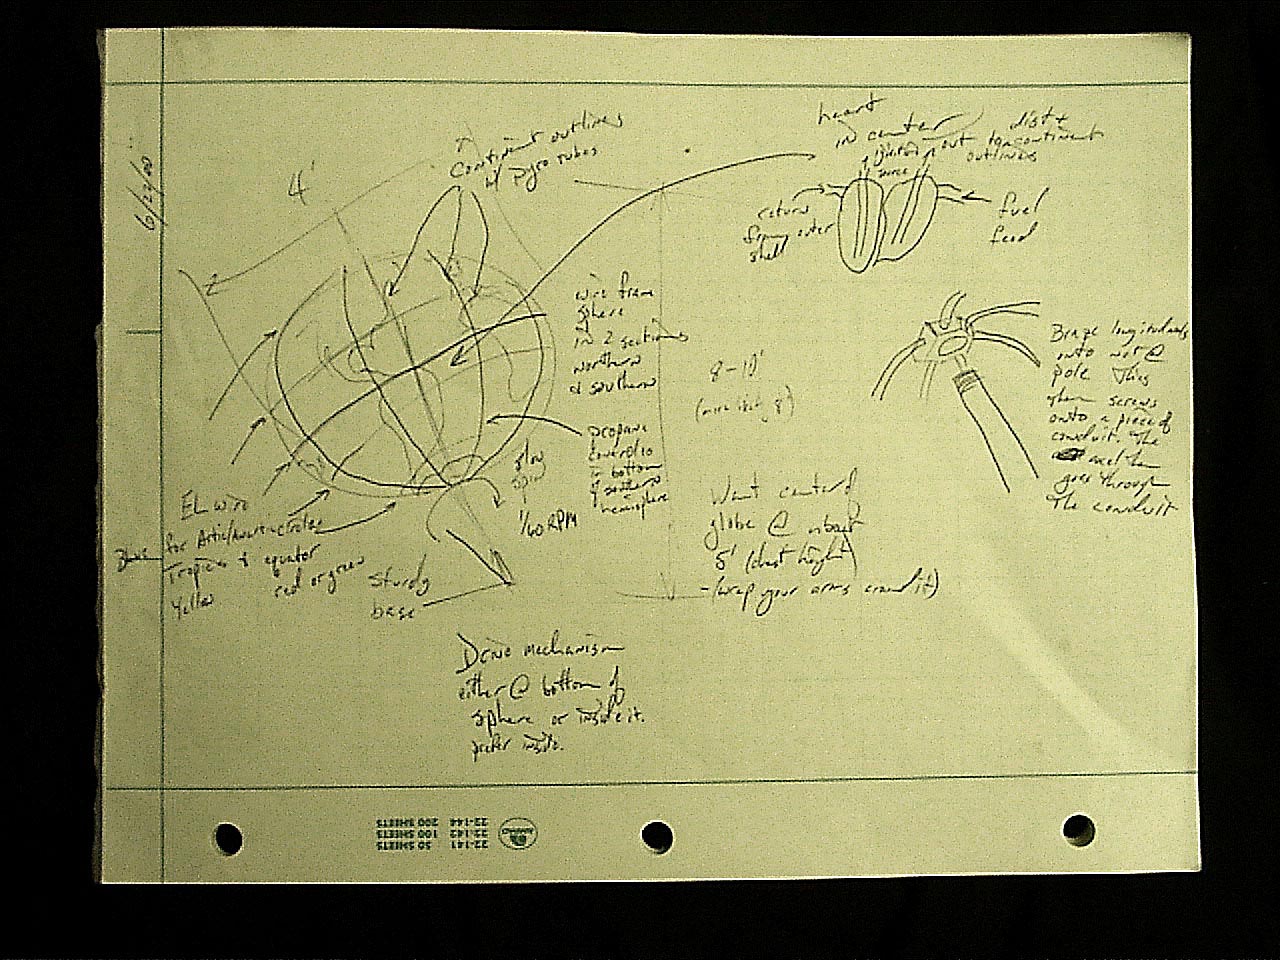 6/22/00
4'
Continent outlines
w/ pyro tubes
heart
in center
dist to continent
outlines
return
from outer
shell
fuel
feed
wire frame
sphere
in 2 sections
northern
& southern
8-10'
(more likely 8)
Braze longitudinals
onto nut @
pole This
then screws
onto a piece of
conduit. The
axel then
goes through
the conduit
propane
control is
in bottom
of southern
hemisphere
slow
spin
1/60 RPM
Want center of
globe @ about
5' (chest height)
- (wrap your arms around it)
EL wire
Blue for Artic/Antarctic circles
Tropics & equator
Yellow red or green
Sturdy
base
Drive mechanism
either @ bottom of
sphere or inside it.
prefer inside.
22-141 50 SHEETS
22-142 100 SHEETS
22-144 200 SHEETS